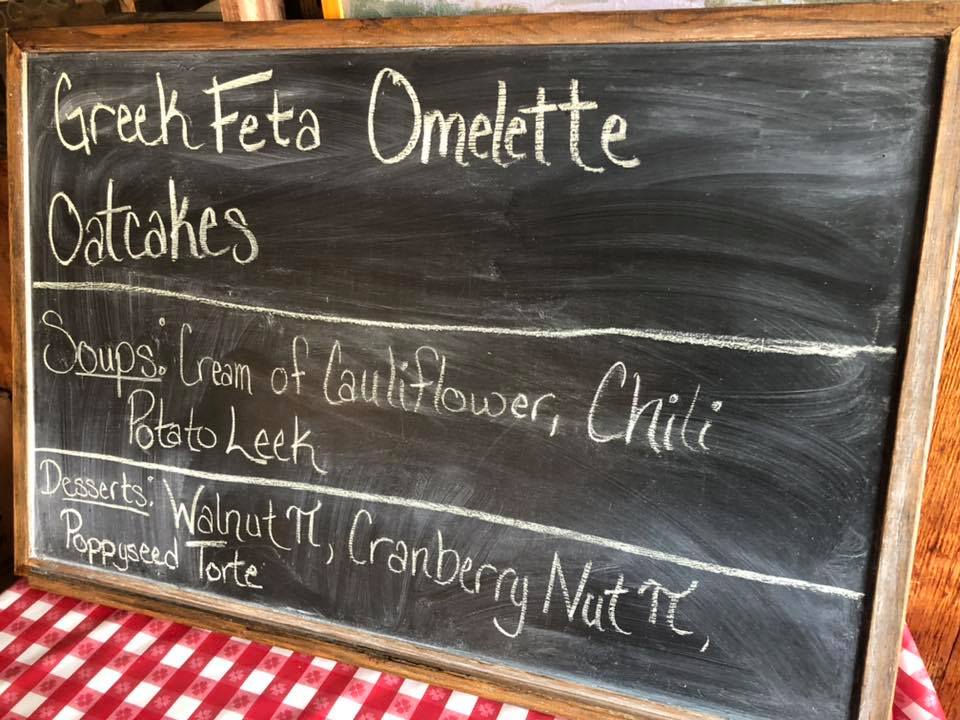 Greek Feta Omelette
Oatcakes
Soups: Cream of Cauliflower, Chili
Potato Leek
Desserts: Walnut π, Cranberry Nut π,
Poppyseed Torte